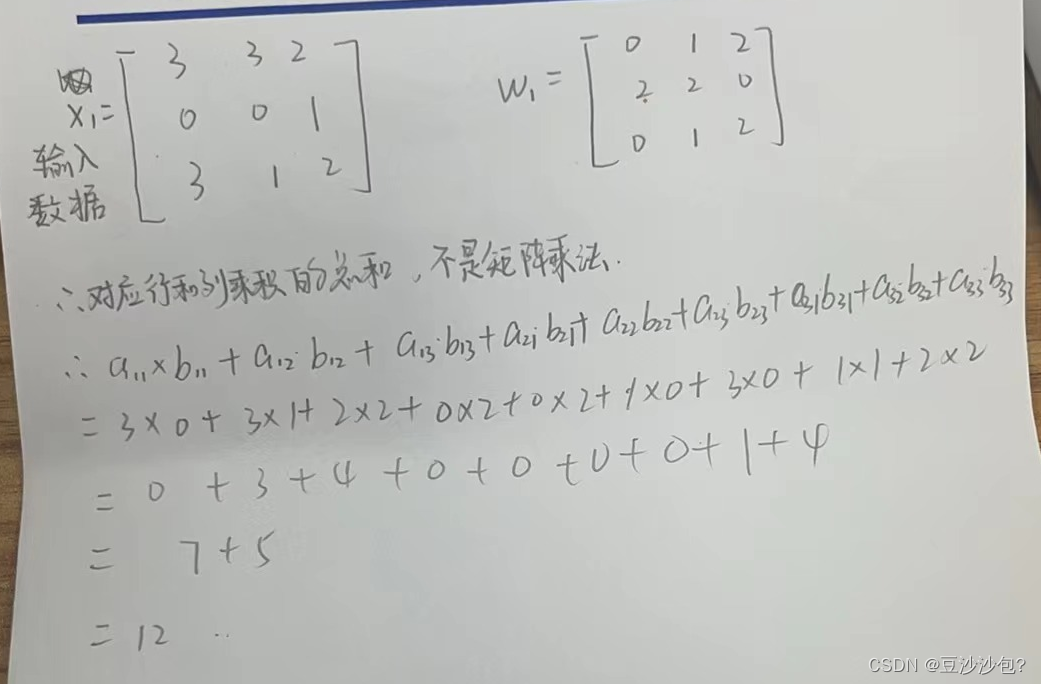 x₁= [ 3 3 2
0 0 1
3 1 2 ]
输入
数据
W₁= [ 0 1 2
2 2 0
0 1 2 ]
∴对应行和列乘积的总和，不是矩阵乘法.
∴ a₁₁×b₁₁ + a₁₂·b₁₂ + a₁₃·b₁₃ + a₂₁·b₂₁ + a₂₂b₂₂ + a₂₃·b₂₃ + a₃₁b₃₁ + a₃₂b₃₂ + a₃₃·b₃₃
= 3×0 + 3×1 + 2×2 + 0×2 + 0×2 + 1×0 + 3×0 + 1×1 + 2×2
= 0 + 3 + 4 + 0 + 0 + 0 + 0 + 1 + 4
= 7 + 5
= 12
CSDN @豆沙沙包?